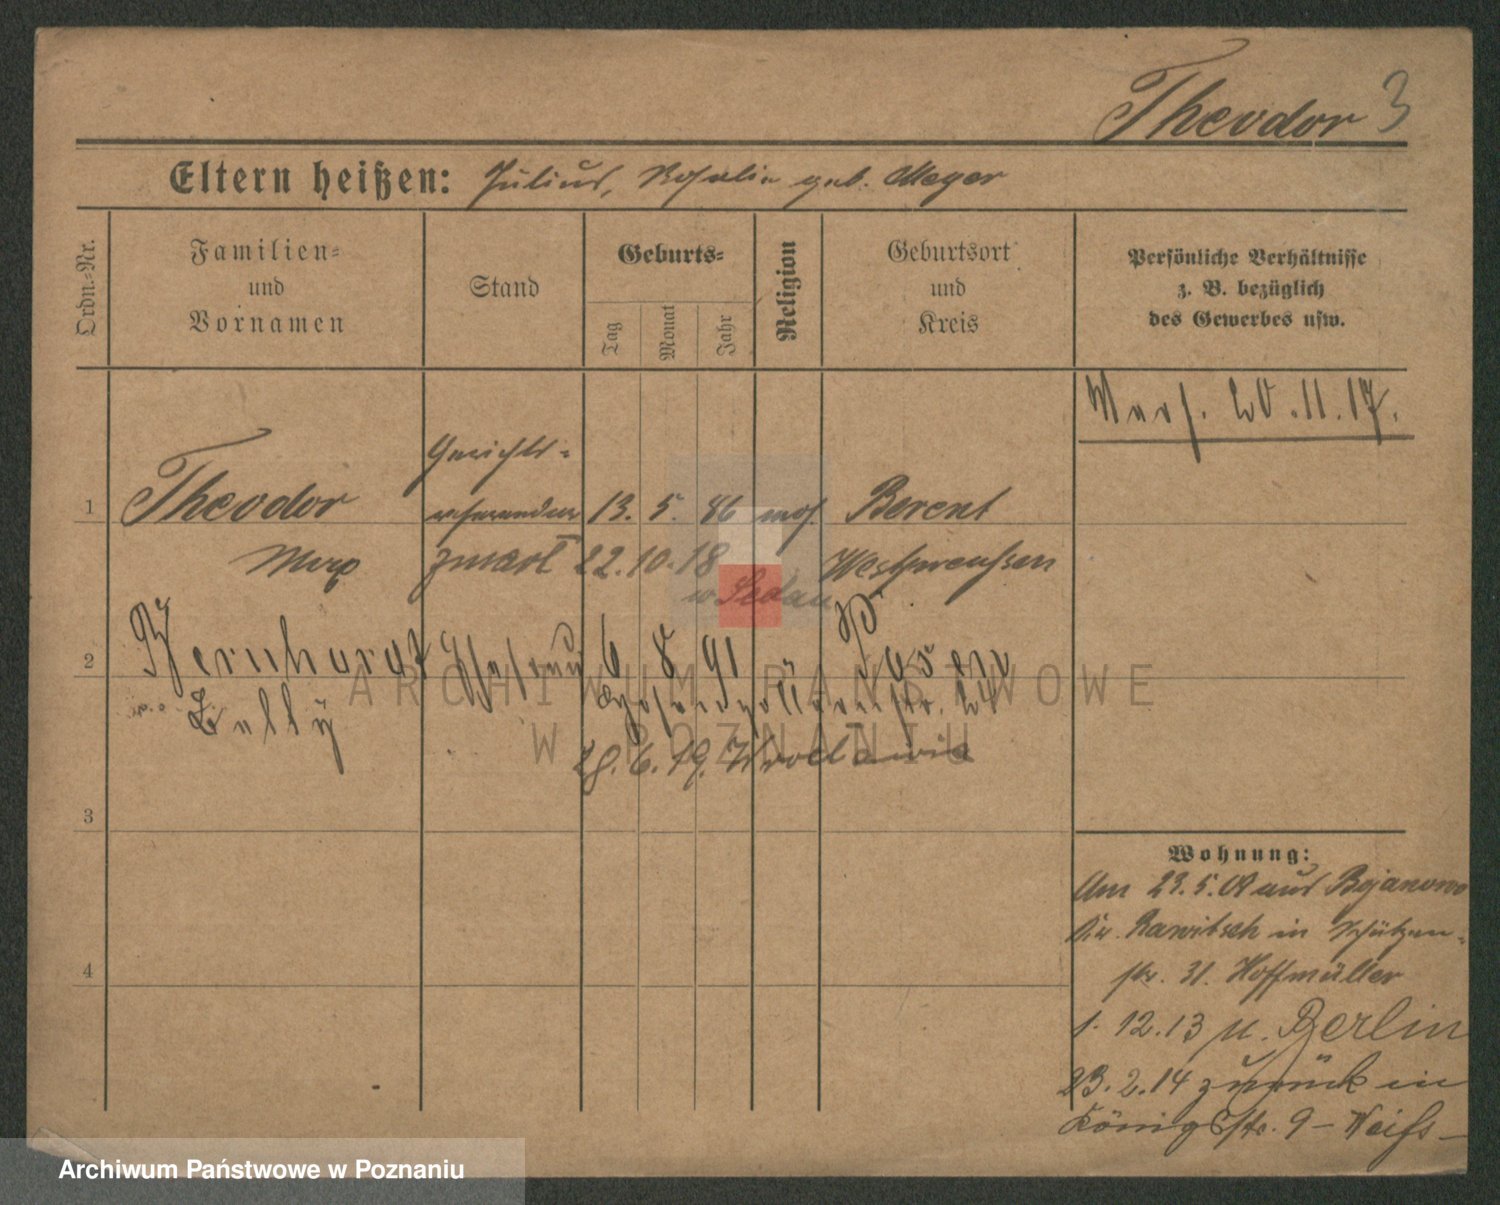 Theodor 3
Eltern heißen: Julius, Rosalie geb. Meyer
Ordn.-Nr.
Familien-
und
Vornamen
Stand
Geburts-
Tag
Monat
Jahr
Religion
Geburtsort
und
Kreis
Persönliche Verhältnisse
z. B. bezüglich
des Gewerbes usw.
20.11.17.
Gerichts-
1 Theodor referendar 13. 5. 86 mos. Berent
Max 22.10.18 Westpreußen
in Sedan
2 Bernhardt Ehefrau 6 8 91 Posen
Zelly
28.6.19.
3
4
Wohnung:
Am 23.5.08 aus Bojanowo
Kr. Rawitsch in Schützen-
str. 31. Hoffmüller
1. 12.13 n. Berlin
23.2.14 zurück in
Königstr. 9 - Weiss -
ARCHIWUM PAŃSTWOWE
W POZNANIU
Archiwum Państwowe w Poznaniu